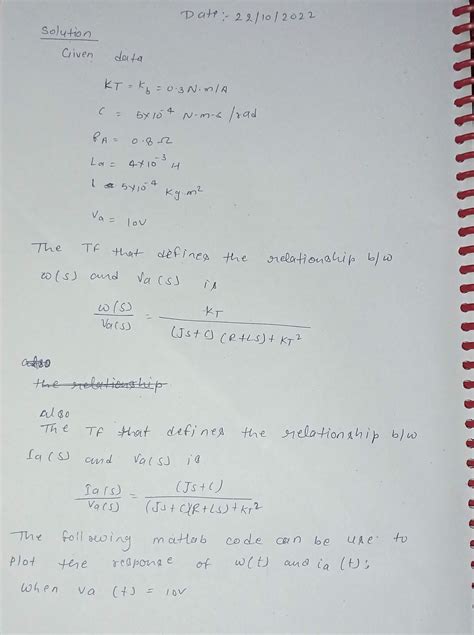 Date :- 22/10/2022
Solution
Given data
KT = Kb = 0.3 N.m/A
C = 5×10⁻⁴ N-m-s/rad
RA = 0.8 Ω
La = 4×10⁻³ H
I = 5×10⁻⁴ Kg m²
Va = 10V
The TF that defines the relationship b/w
ω(s) and Va(s) is
ω(s)/Va(s) = KT/((Js+C)(R+LS)+KT²)
also
the relationship
Also
The TF that defines the relationship b/w
Ia(s) and Va(s) is
Ia(s)/Va(s) = (Js+C)/((Js+C)(R+Ls)+KT²)
The following matlab code can be use to
plot the response of ω(t) and ia(t);
when va (t) = 10V